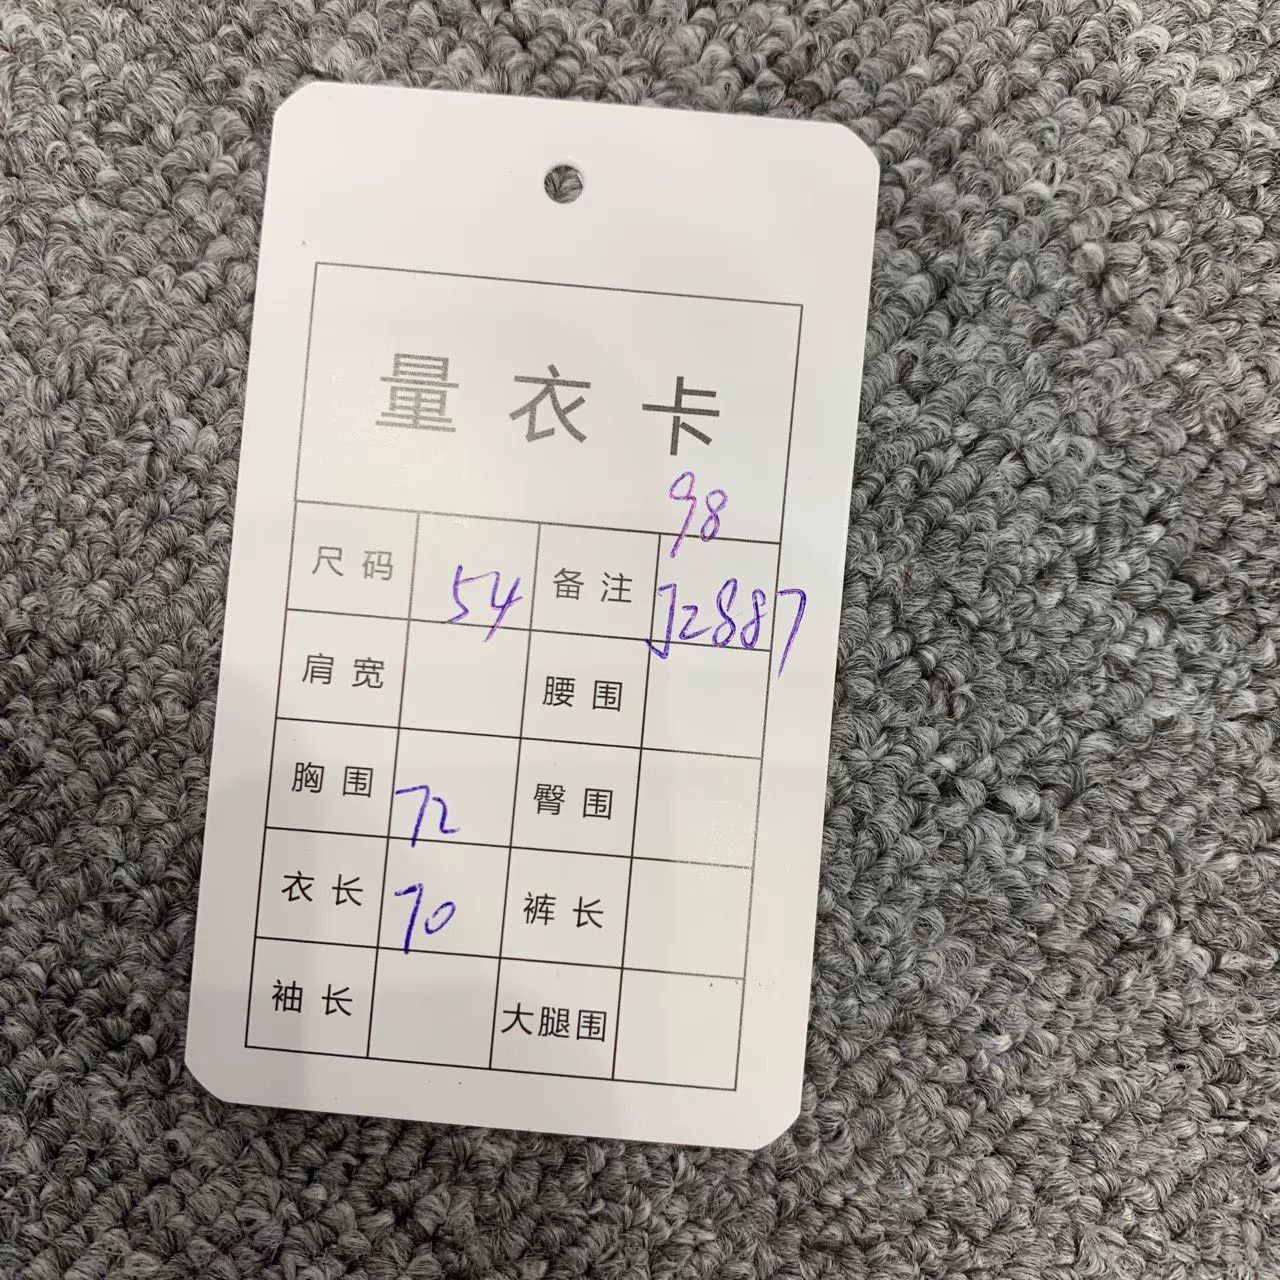 量衣卡
98
尺码 54 备注 J2887
肩宽 腰围
胸围 72 臀围
衣长 70 裤长
袖长 大腿围